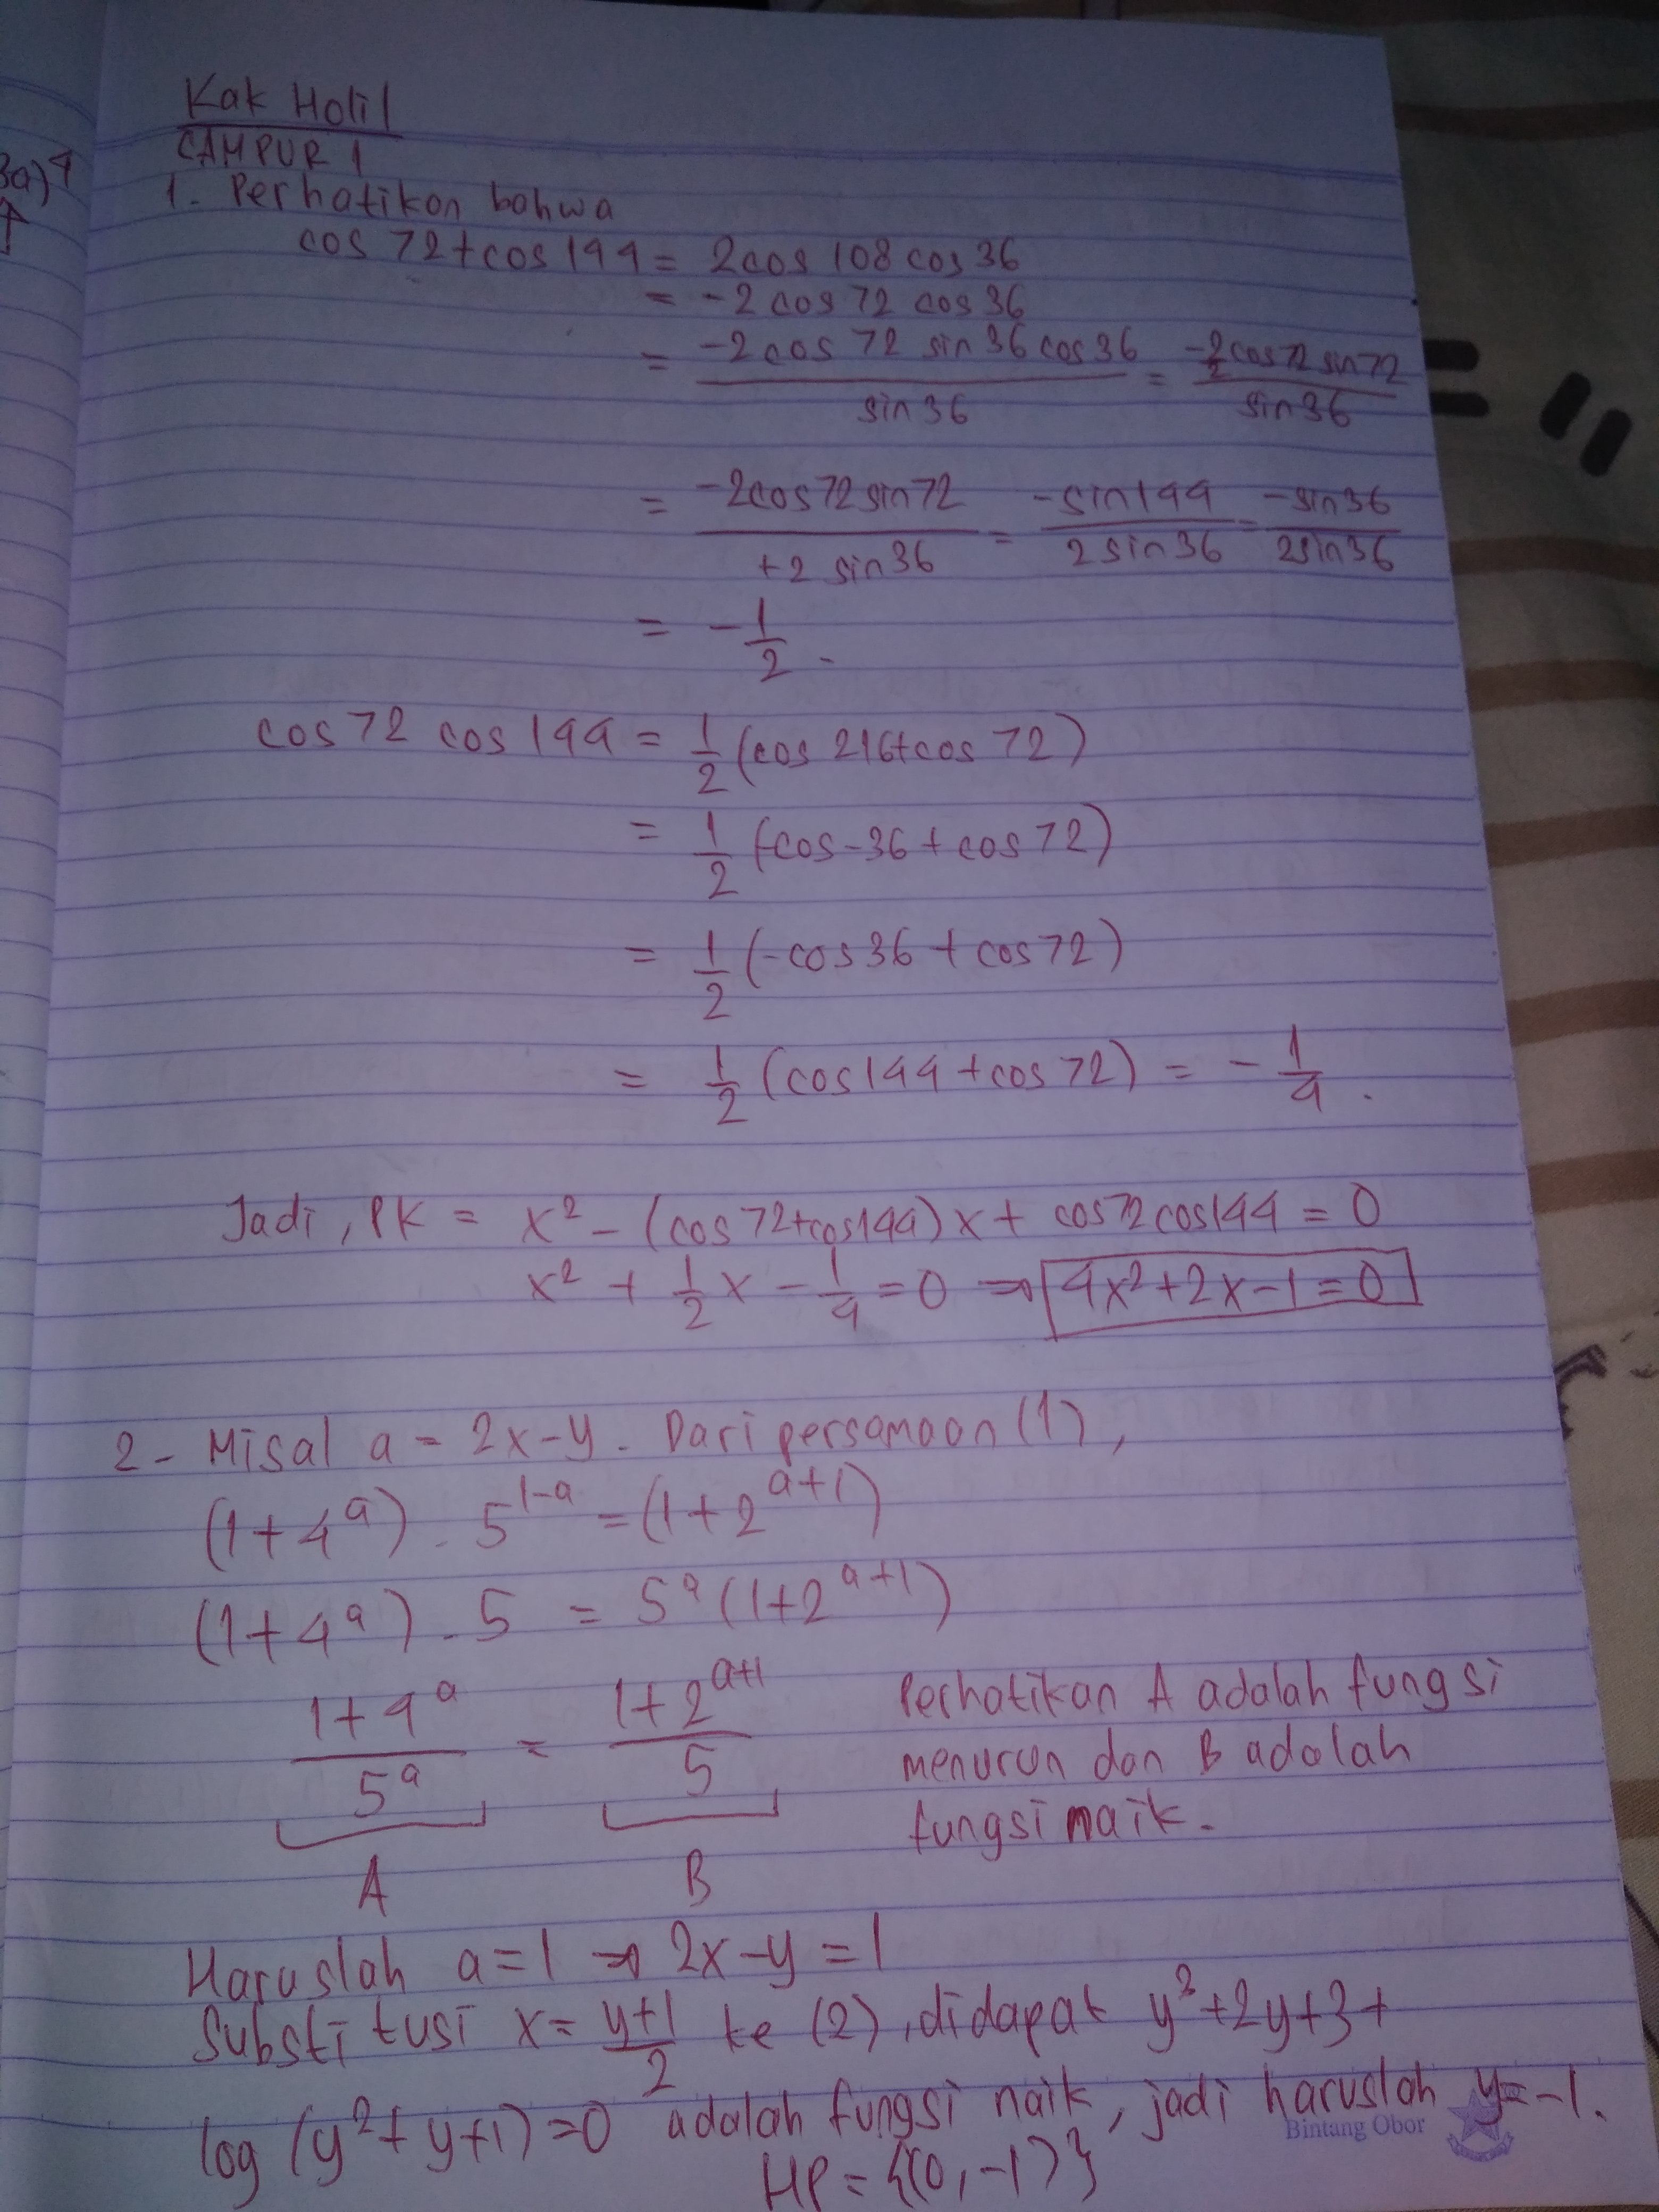 3a)4
↑
Kak Holil
CAMPUR 1
1. Perhatikan bahwa
cos 72 + cos 144 = 2 cos 108 cos 36
= -2 cos 72 cos 36
= -2 cos 72 sin 36 cos 36 / sin 36 = -2/2 cos 72 sin 72 / sin 36
= -2 cos 72 sin 72 / +2 sin 36 = -sin 144 / 2 sin 36 = -sin 36 / 2 sin 36
= -1/2.
cos 72 cos 144 = 1/2 (cos 216 + cos 72)
= 1/2 (cos -36 + cos 72)
= 1/2 (-cos 36 + cos 72)
= 1/2 (cos 144 + cos 72) = -1/4.
Jadi, PK = x² - (cos 72 + cos 144) x + cos 72 cos 144 = 0
x² + 1/2 x - 1/4 = 0 ⇒ 4x² + 2x - 1 = 0
2. Misal a = 2x - y. Dari persamaan (1),
(1 + 4^a) . 5^(1-a) = (1 + 2^(a+1))
(1 + 4^a) . 5 = 5^a (1 + 2^(a+1))
(1 + 4^a) / 5^a = (1 + 2^(a+1)) / 5 Perhatikan A adalah fungsi
menurun dan B adalah
fungsi naik.
A B
Haruslah a = 1 ⇒ 2x - y = 1
Substitusi x = (y+1)/2 ke (2), didapat y³ + 2y + 3 +
log (y² + y + 1) = 0 adalah fungsi naik, jadi haruslah y = -1.
HP = {(0, -1)}
Bintang Obor